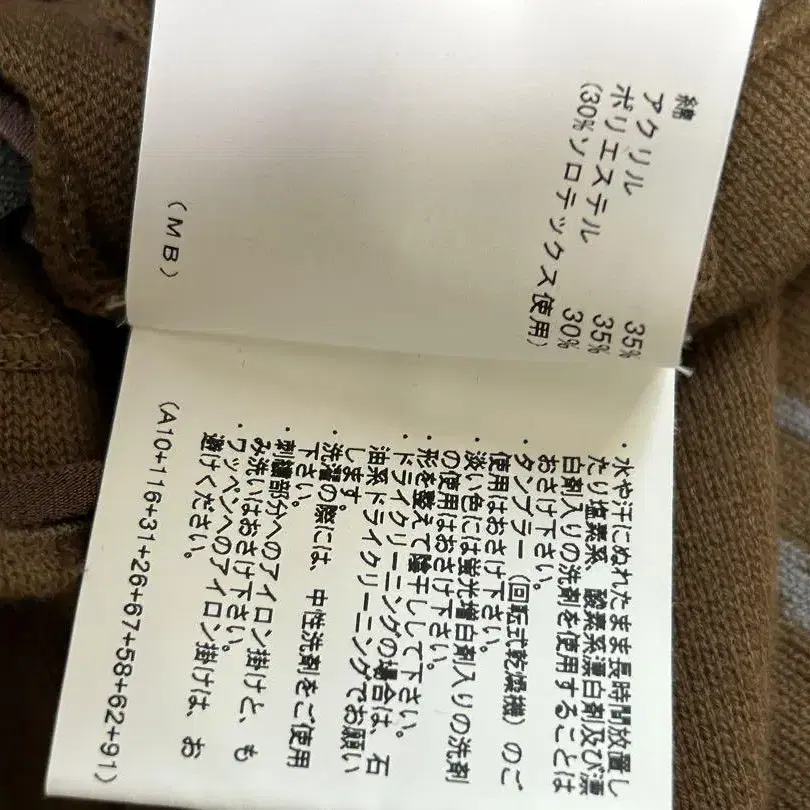 綿 35%
アクリル 35%
ポリエステル 30%
(30%ソロテックス使用)
(MB)
・水や汗にぬれたまま長時間放置し
たり塩素系、酸素系漂白剤及び漂
白剤入りの洗剤を使用することは
おさけ下さい。
・タンブラー(回転式乾燥機)のご
使用はおさけ下さい。
・淡い色には蛍光増白剤入りの洗剤
の使用はおさけ下さい。
形を整えて陰干しして下さい。
・ドライクリーニングの場合は、石
油系ドライクリーニングでお願い
します。
・洗濯の際には、中性洗剤をご使用
下さい。
・刺繍部分へのアイロン掛けと、も
み洗いはおさけ下さい。
・ワッペンへのアイロン掛けは、お
避けください。
(A10+116+31+26+67+58+62+91)